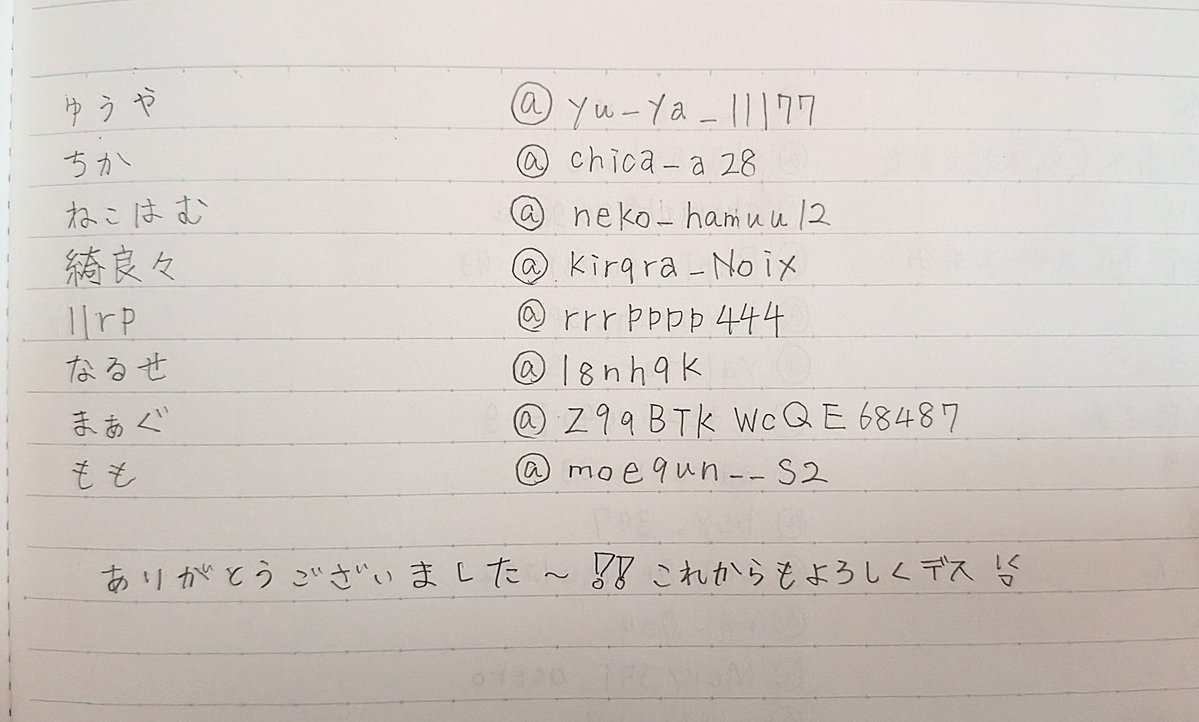 ゆうや @yu-ya_11177
ちか @chica_a28
ねこはむ @neko_hamuu12
綺良々 @kirara_Noix
llrp @rrrpppp444
なるせ @18nh9k
まぁぐ @Z99BTKWcQE68487
もも @moequn__S2
ありがとうございました〜!!これからもよろしくデス